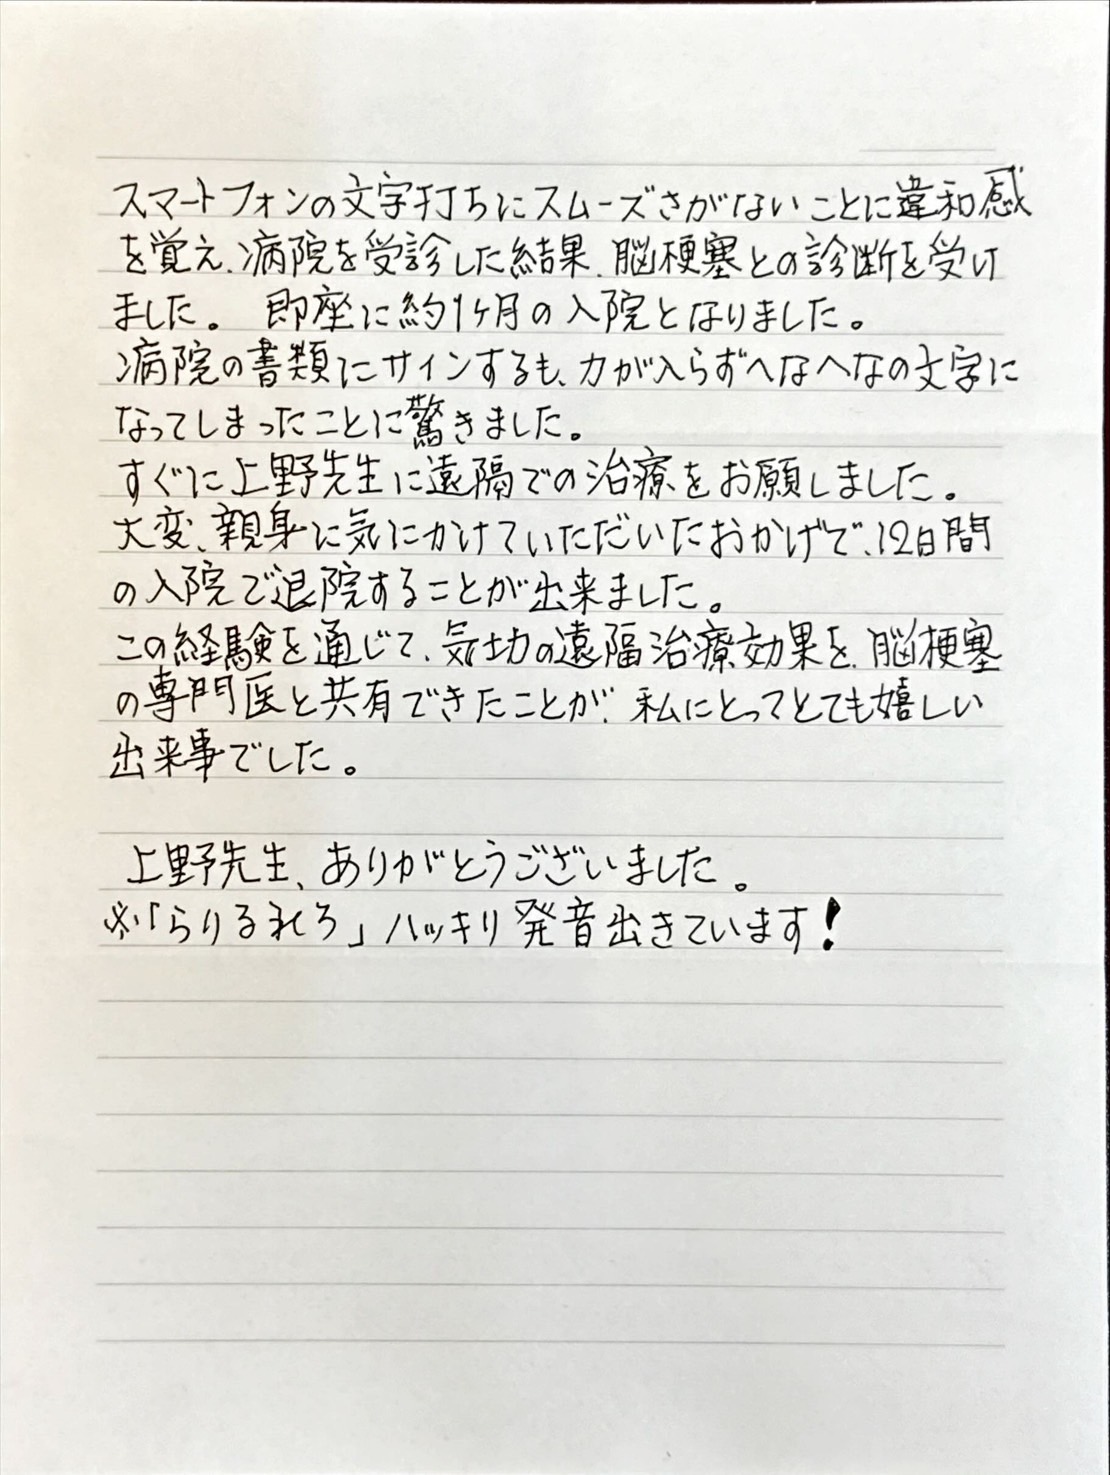 スマートフォンの文字打ちにスムーズさがないことに違和感
を覚え、病院を受診した結果、脳梗塞との診断を受け
ました。 即座に約1ヶ月の入院となりました。
病院の書類にサインするも、力が入らずへなへなの文字に
なってしまったことに驚きました。
すぐに上野先生に遠隔での治療をお願しました。
大変、親身に気にかけていただいたおかげで、12日間
の入院で退院することが出来ました。
この経験を通じて、気功の遠隔治療効果を、脳梗塞
の専門医と共有できたことが、私にとってとても嬉しい
出来事でした。
上野先生、ありがとうございました。
※「らりるれろ」ハッキリ発音出きています!